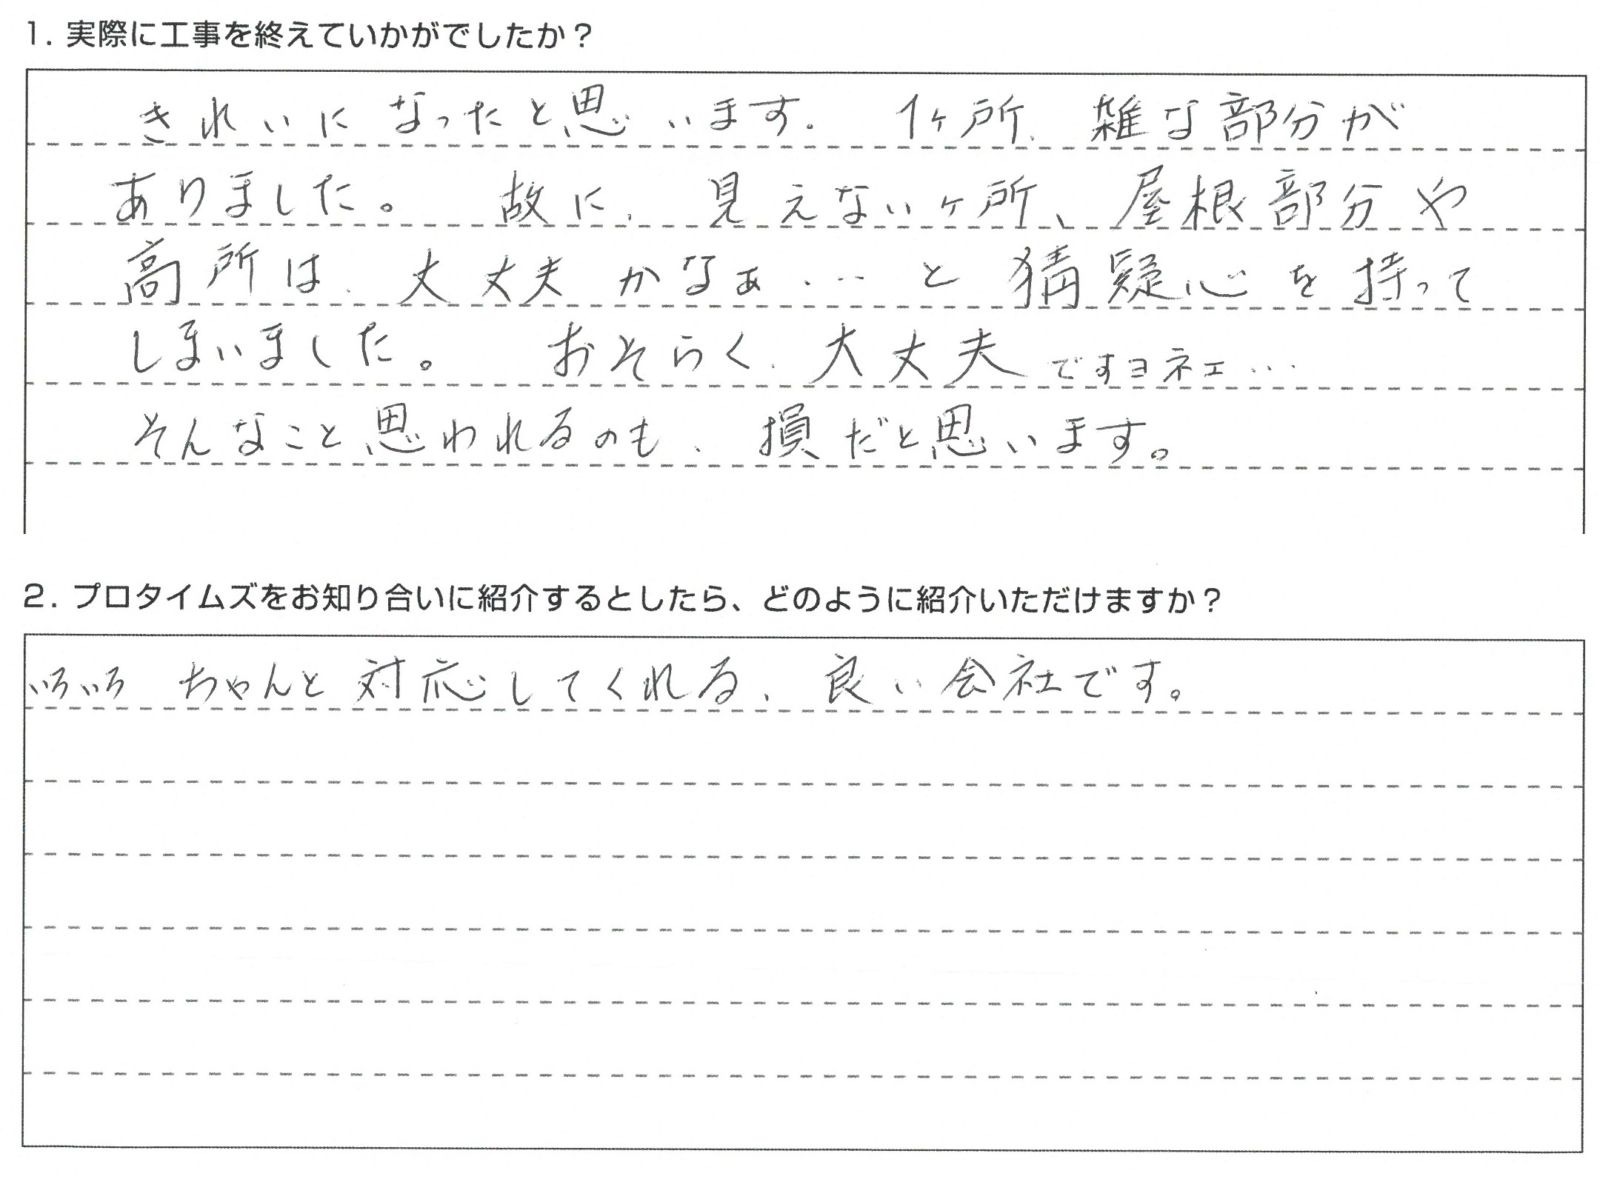 1. 実際に工事を終えていかがでしたか？
きれいになったと思います. 1ヶ所、雑な部分が
ありました。 故に、見えないヶ所、屋根部分や
高所は、大丈夫かなぁ…と猜疑心を持って
しまいました。 おそらく、大丈夫ですヨネェ…
そんなこと思われるのも、損だと思います。
2. プロタイムズをお知り合いに紹介するとしたら、どのように紹介いただけますか？
いろいろ ちゃんと対応してくれる、良い会社です。